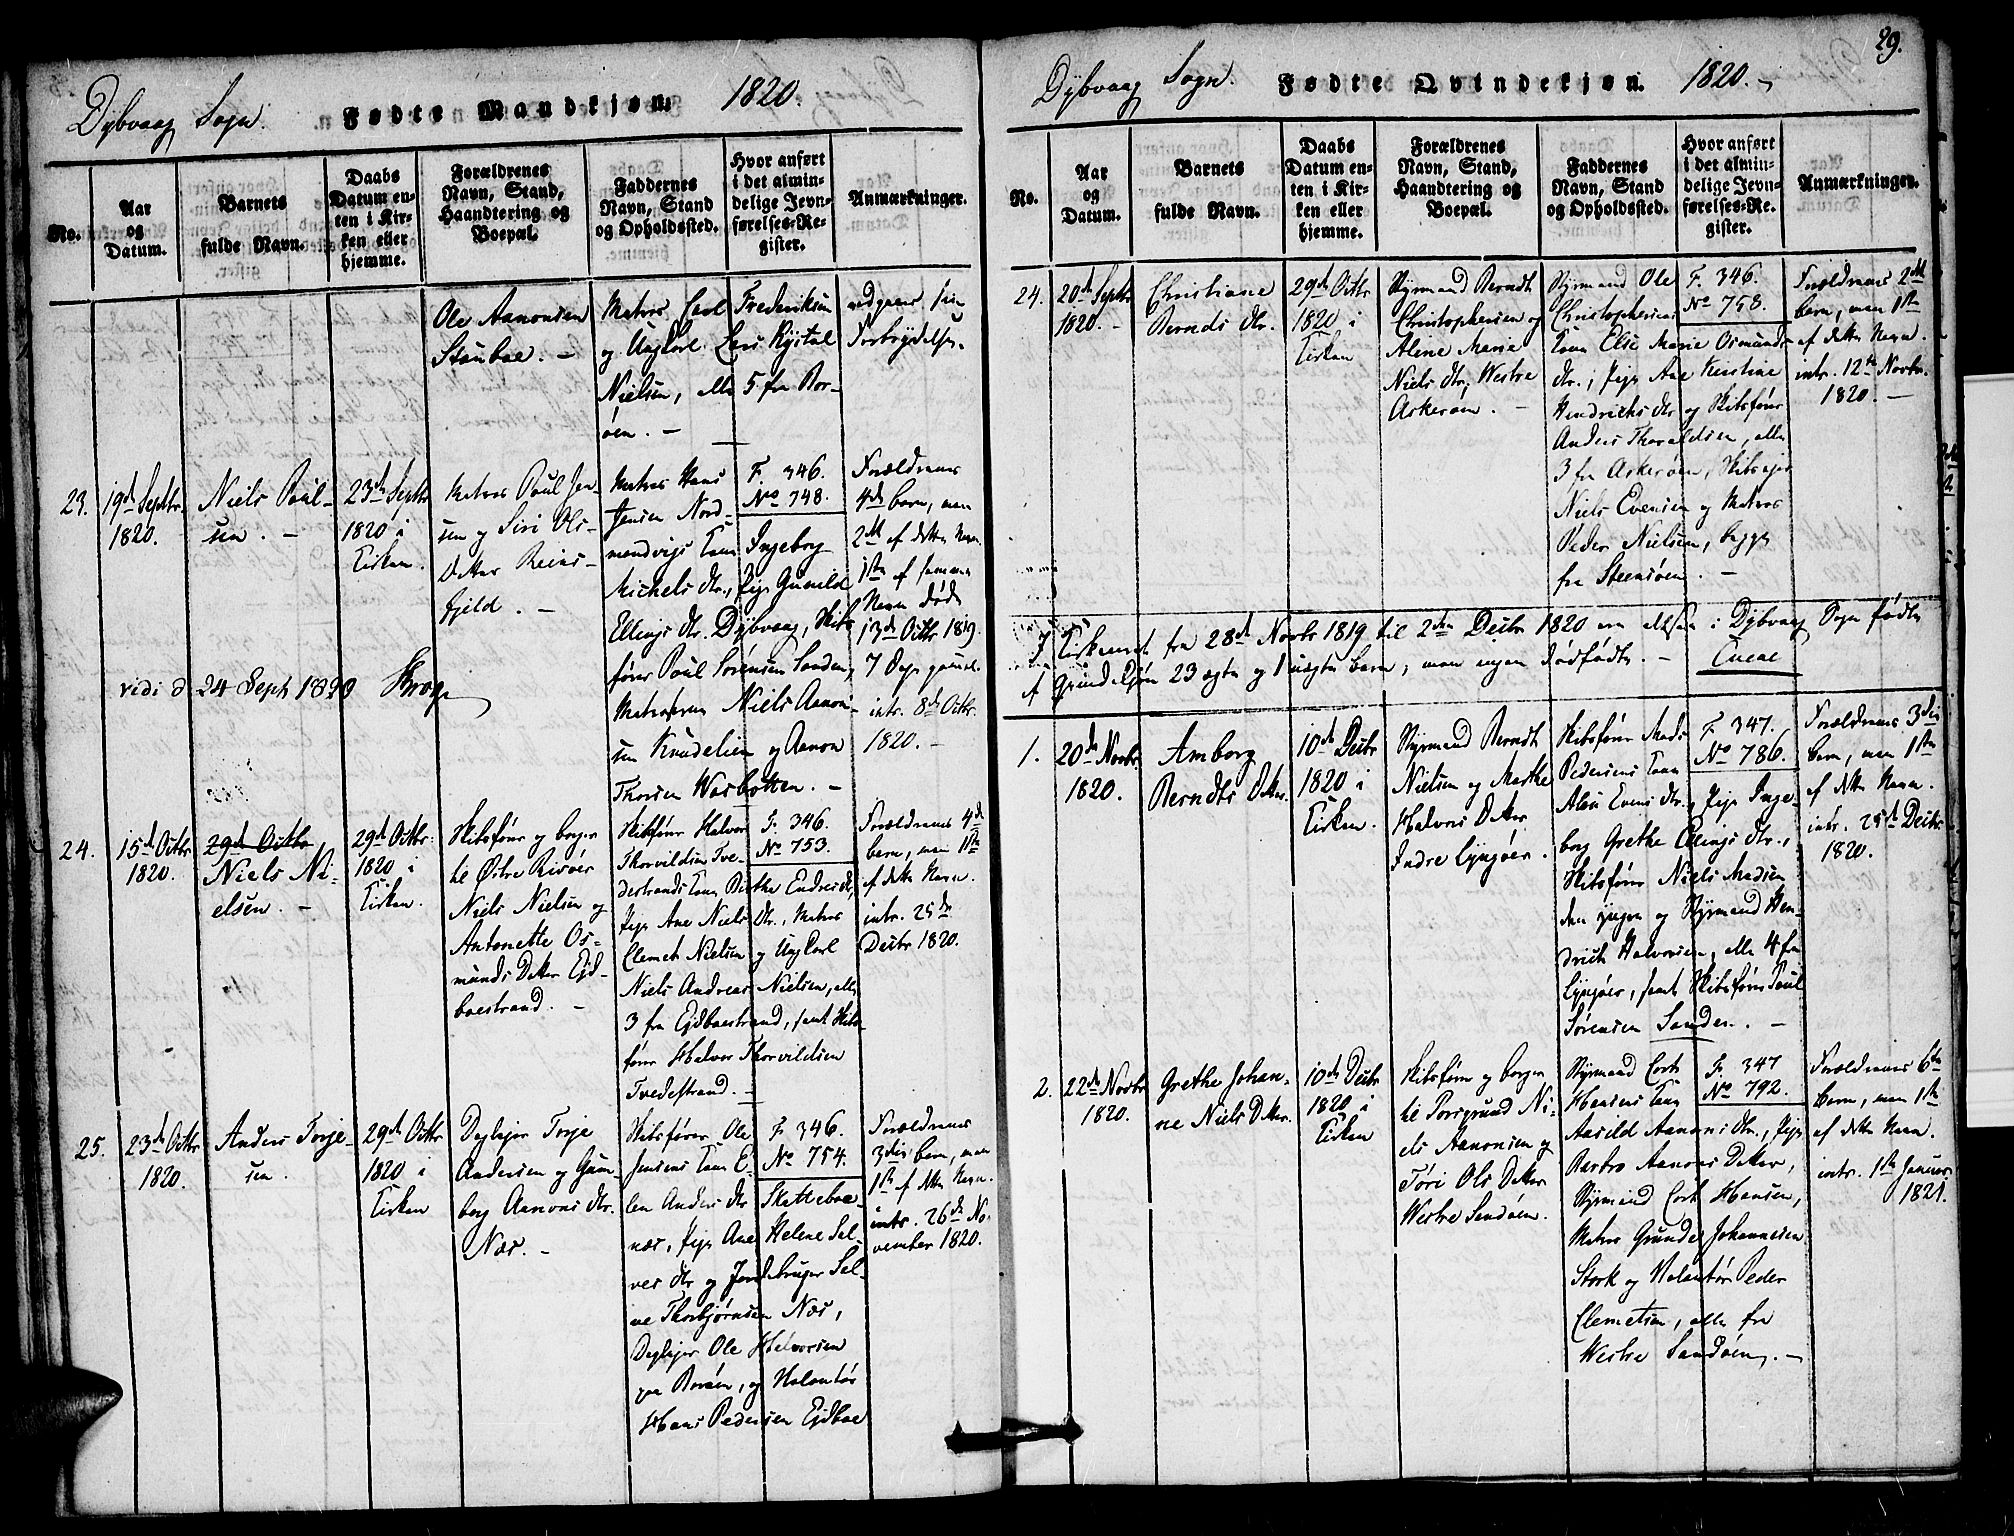 29.
Dybvaag Sogn. Fødte Mandkjøn. 1820.
No.
Aar
og
Datum.
Barnets
fulde Navn.
Daabs
Datum en-
ten i Kir-
ken eller
hjemme.
Forældrenes
Navn, Stand,
Haandtering og
Boepæl.
Faddernes
Navn, Stand
og Opholdssted.
Hvor anført
i det almin-
delige Jevn-
førelses-Re-
gister.
Anmærkninger.
Ole Aanonsen
Stauboe. –
Matros Carl Frederiksen
og Ungkarl Lars Kystal
Nielsen, alle 5 fra Bor-
øen. –
vedgaaer sin
Forbrydelse.
23.
19de Septbr
1820.
Niels Poul-
sen. –
23de Septbr
1820 i
Kirken.
Matros Poul Jen-
sen og Siri Ols-
Datter Reins-
fjeld. –
Matros Hans
Jensen Nord-
mandvigs Kone Ingeborg
Michels dtr., Pige Gunild
Ellings dtr. Dybvaag, Skibs
fører Poul Sørensen Sanden,
Matroserne Niels Aanon-
sen Knudelien og Aanon
Thorsen Wasbotten. –
F. 346.
No 748.
Forældrenes
4de barn, men
2det af dette Navn
1ste af samme
Navn døde
13de Octbr 1819.
7 Dage gammel.
intr. 8de Octbr.
1820. –
vidi d 24 Sept 1820 Krog
24.
15de Octbr
1820.
29de Octbr
Niels Ni-
elsen. –
29de Octbr
1820 i
Kirken.
Skibsfører og borger
til Østre Risøer
Niels Nielsen og
Antonette Os-
munds Datter Ejd-
boestrand. –
Skibsfører Halvor
Thorvildsen Tve-
destrands Kone Birthe Endres dtr,
Pige Ane Niels dtr., Matros
Clemet Nielsen og Ungkarl
Niels Andreas Nielsen, alle
3 fra Ejdboestrand, samt Skibs-
fører Halvor Thorvildsen
Tvedestrand. –
F. 346.
No 753.
Forældrenes 4de
barn, men 1ste
af dette Navn.
intr. 25de
Decbr 1820.
25.
23de Octbr
1820.
Anders Torje-
sen.
29de Octbr
1820 i
Kirken
Deylejer Torje
Andersen og Gun-
borg Aanons dtr.
Næs. –
Skibsfører Ole
Jensens Kone E-
len Anders dtr
næs, Pige Ane
Helene Sal-
ves dtr og Jordbruger Sal-
ve Thorbjørnsen Næs,
Deylejer Ole Halvorsen
paa Borøen, og Holantør
Hans Pedersen Ejdboe
F. 346.
No 754.
Skatteboe
Forældrenes
3die barn, men
1ste af dette Navn.
intr. 26de No-
vember 1820.
Dybvaag Sogn. Fødte Qvindekjøn. 1820. –
No.
Aar
og
Datum.
Barnets
fulde Navn.
Daabs
Datum en-
ten i Kir-
ken eller
hjemme.
Forældrenes
Navn, Stand,
Haandtering og
Boepæl.
Faddernes
Navn, Stand
og Opholdssted.
Hvor anført
i det almin-
delige Jevn-
førelses-Re-
gister.
Anmærkninger.
24.
20de Septbr
1820. –
Christiane
Bernds dtr.
29de Octbr
1820 i
Kirken
Styrmand Berndt
Christophersen og
Aline Marie
Niels dtr, Westre
Askerøen. –
Styrmand Ole
Christophersens
Kone Else Marie Osmunds
dtr.; Pige Ane Kirstine
Hendrichs dtr og Skibsfører
Anders Thoraldsen, alle
3 fra Askerøen, Skibsejer
Niels Evensen og Matros
Peder Nielsen, begge
fra Steensøen. –
F. 346.
No 758.
Forældrenes 2det
barn, men 1ste
af dette Navn.
intr. 12te Novbr.
1820. –
I Kirkeaaret fra 28de Novbr 1819 til 2den Decbr 1820 ere altsaa i Dybvaag Sogn fødte
af Qvindekjøn 23 ægte og 1 uægte barn, men ingen dødfødte. –
1.
20de Novbr.
1820.
Amborg
Berndts Datter.
10de Decbr
1820 i
Kirken.
Styrmand Berndt
Nielsen og Marthe
Halvors Datter
Indre Lyngøer.
Skibsfører Mads
Pedersens Kone
Alau Evens dtr., Pige Inge-
borg Grethe Ellings dtr.,
Skibsfører Niels Madsen
den yngre og Styrmand Hen-
drich Halvorsen, alle 4 fra
Lyngøer, samt Skibsfører Poul
Sørensen Sanden. –
F. 347.
No 786.
Forældrenes 3die
barn, men 1ste
af dette Navn.
intr. 25de Decbr
1820.
2.
22de Novbr
1820.
Grethe Johan-
ne Niels Datter.
10de Decbr
1820 i
Kirken
Skibsfører og borger
til Porsgrund Ni-
els Aanonsen og
Tøri Ols Datter
Westre Sandøen.
Styrmand Cort
Hansens Kone
Aasild Aanons dtr., Pige
Barbro Aanons Datter,
Styrmand Cort Hansen,
Matros Grunde Johannesen
Stork og Holantør Peder
Clemetsen, alle fra
Westre Sandøen. –
F. 347
No 792.
Forældrenes 6te
barn, men 1ste
af dette Navn.
intr. 1ste Januar
1821.